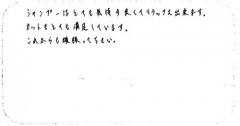 シャンプーはとても気持ち良くてリラックス出来ます。
カットもとても満足しています。
これからも頑張って下さい。